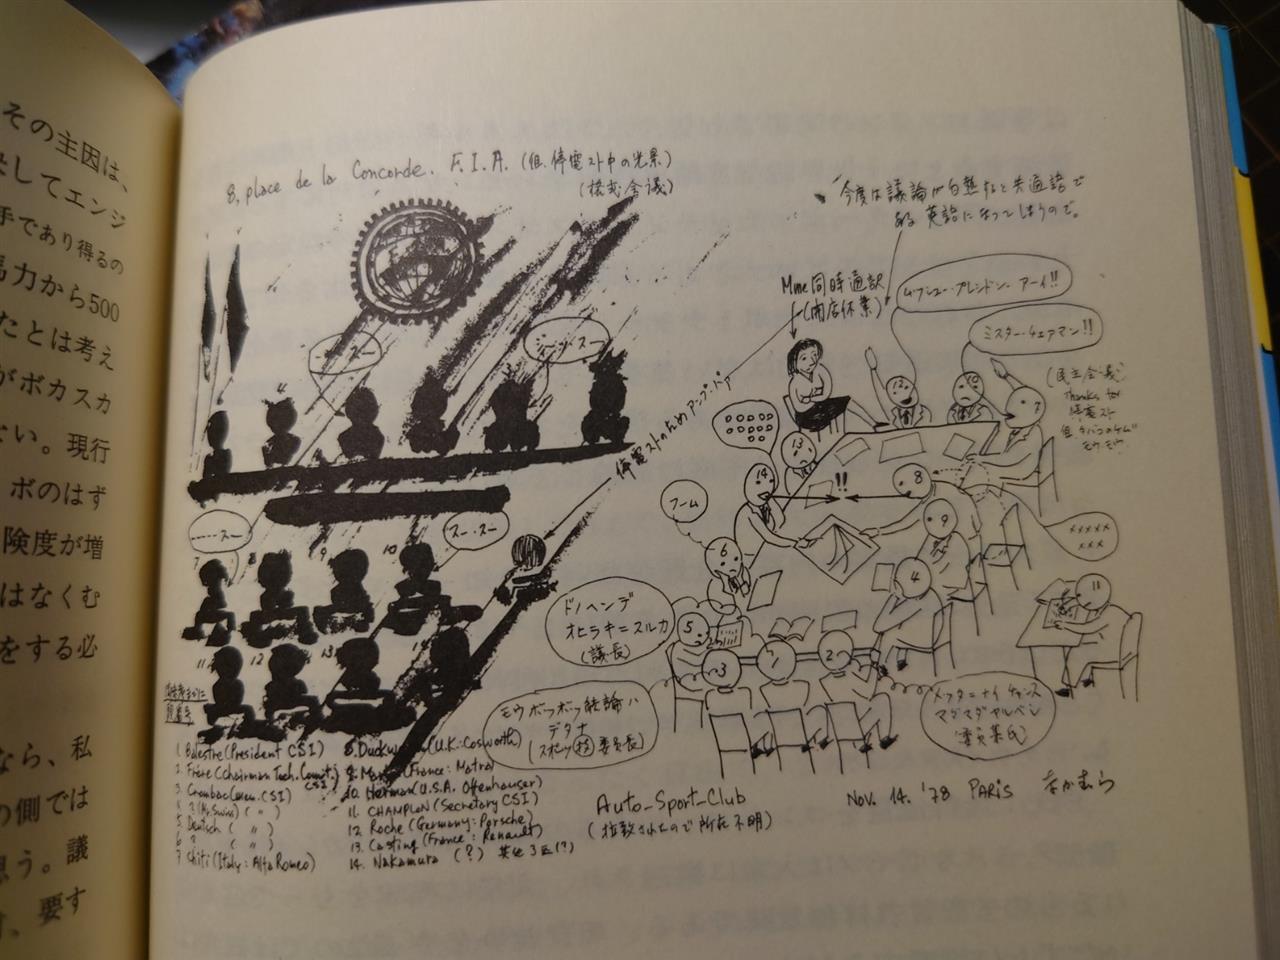 その主因は、
してエンジ
手であり得るの
馬力から500
たとは考え
がボカスカ
ない。現行
ボのはず
険度が増
はなくむ
をする必
なら、私
の側では
思う。議
、要す
8, place de la Concorde. F.I.A. (但.停電スト中の光景)
(模擬会議)
今度は議論が白熱すると共通語で
ある英語になってしまうので。
Mme同時通訳
(開店休業)
ムッシュー・プレジドン アーイ!!
ミスター・チェアマン!!
(民主会議)
Thanks for
停電スト
但タバコのケムで
モウモウ.
スー
スー
停電ストのため
スー
スー・スー
4
5
7
8
9
10
11
12
13
12
10
7
13
14
!!
8
9
フーム
6
4
11
××××××
×××
ドノヘンデ
オヒラキニスルカ
(議長)
5
3
1
2
モウボツボツ結論ハ
デタナ
(スポーツ技委員長)
1. Balestre (President CSI)
2. Frère (Chairman Tech. Comit. CSI)
3. Crombac (Mem. CSI)
4. ? (Mr. Swiss) ( 〃 )
5 Deutsch ( 〃 )
6 ? ( 〃 )
7 Chiti (Italy: Alfa Romeo)
8. Duckworth (U.K.: Cosworth)
9. (France: Matra)
10. Herman (U.S.A. Offenhauser)
11. CHAMPION (Secretary CSI)
12. Roche (Germany: Porsche)
13. Casting (France: Renault)
14. Nakamura (?) 其他3匹!?
Auto-Sport-Club
(拉致されたので所在不明)
Nov. 14. '78 PARIS なかむら